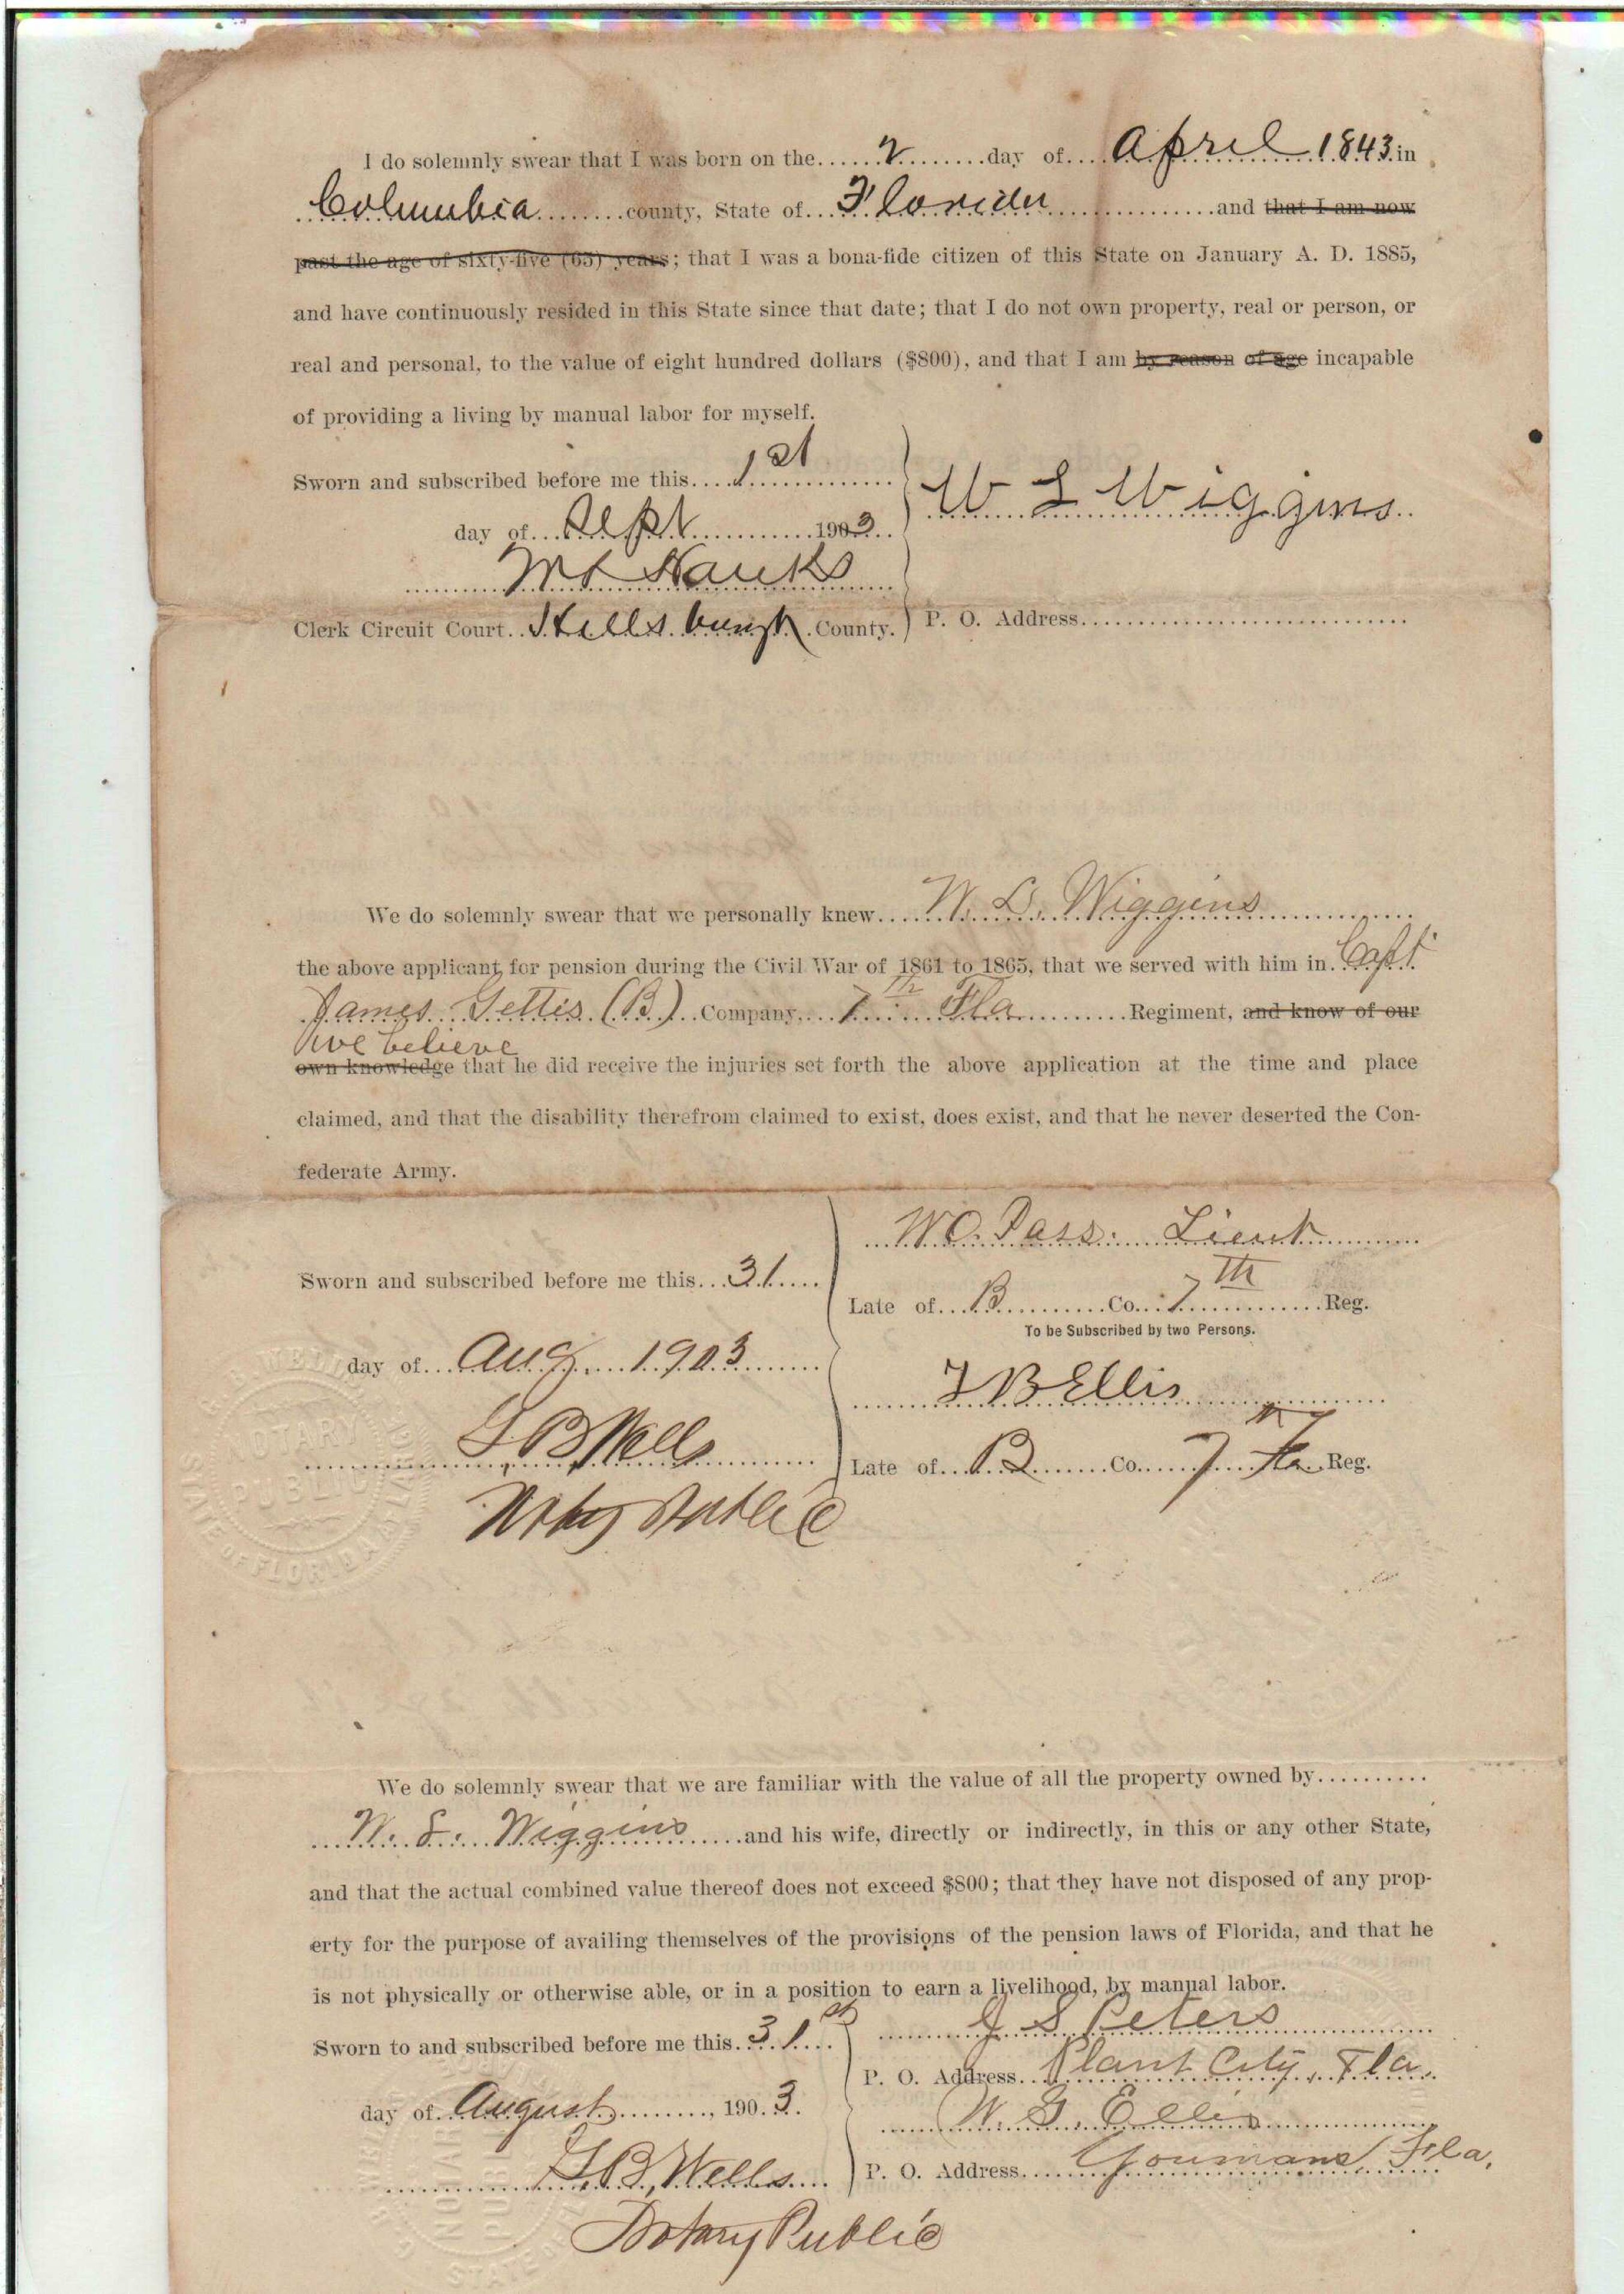 I do solemnly swear that I was born on the......2........day of....April 1843 in
Columbia........county, State of...Florida...............and that I am now
past the age of sixty-five (65) years; that I was a bona-fide citizen of this State on January A. D. 1885,
and have continuously resided in this State since that date; that I do not own property, real or person, or
real and personal, to the value of eight hundred dollars ($800), and that I am by reason of age incapable
of providing a living by manual labor for myself.
Sworn and subscribed before me this....1st
day of...Sept............1903...
W L Wiggins
Clerk Circuit Court..Hillsburgh.County.
P. O. Address..............................
We do solemnly swear that we personally knew....W. L. Wiggins
the above applicant for pension during the Civil War of 1861 to 1865, that we served with him in.Capt
James Gettis (B)..Company,...7th Fla..........Regiment, and know of our
we believe
own knowledge that he did receive the injuries set forth the above application at the time and place
claimed, and that the disability therefrom claimed to exist, does exist, and that he never deserted the Con-
federate Army.
Lieut
Sworn and subscribed before me this...31....
Late of...B..........Co...7th............Reg.
To be Subscribed by two Persons.
day of...Aug....1903.......
Ellis
G. B. Wells
Late of...B........Co.....7th Fla..Reg.
Notary Public
NOTARY PUBLIC
STATE OF FLORIDA AT LARGE
We do solemnly swear that we are familiar with the value of all the property owned by..........
W. L. Wiggins.....and his wife, directly or indirectly, in this or any other State,
and that the actual combined value thereof does not exceed $800; that they have not disposed of any prop-
erty for the purpose of availing themselves of the provisions of the pension laws of Florida, and that he
is not physically or otherwise able, or in a position to earn a livelihood, by manual labor.
Sworn to and subscribed before me this..31st
J S Peters
P. O. Address...Plant City, Fla.
day of.August........., 190.3.
W. G. Ellis
G. B. Wells
P. O. Address....Youmans, Fla.
Notary Public